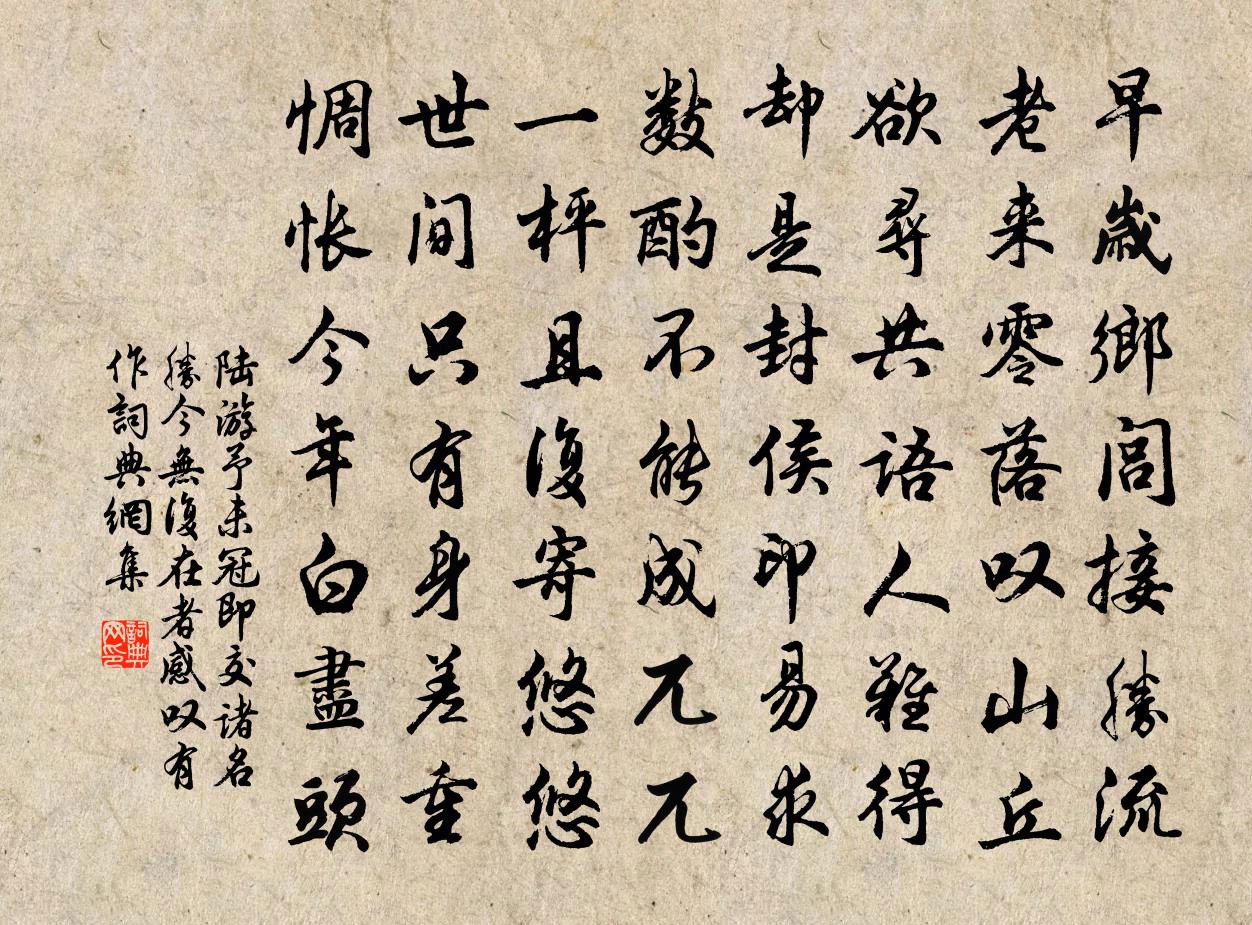 早歲鄉閭接勝流
老来零落叹山丘
欲尋共語人難得
却是封侯印易求
数酌不能成兀兀
一枰且復寄悠悠
世间只有身差重
惆怅今年白盡頭
陆游予未冠即交诸名
勝今無復在者感叹有
作詞典網集
詞典
网印